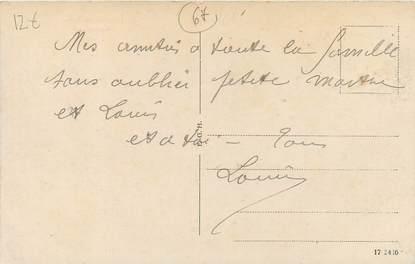 12€
67
Mes amitiés à toute la famille
sans oublier petite
et Louis
et à toi - Tous
Louis
17 2410